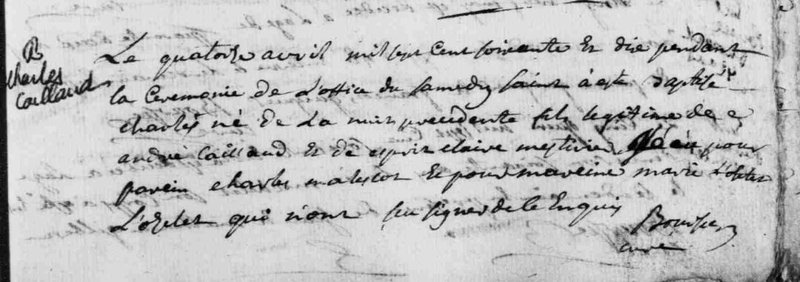 B
Charles
Caillaud
Le quatorse avril mil sept Cent soixante et dixe pendant
la Ceremonie de L'office du samedy saint à esté baptisé
charles né de La nuit precedente fils legitime de
andré Caillaud et de esprit claire mestivier a eu pour
parein charles malescot et pour mareine marie
qui n'ont sçu signer de ce Enquis
curé